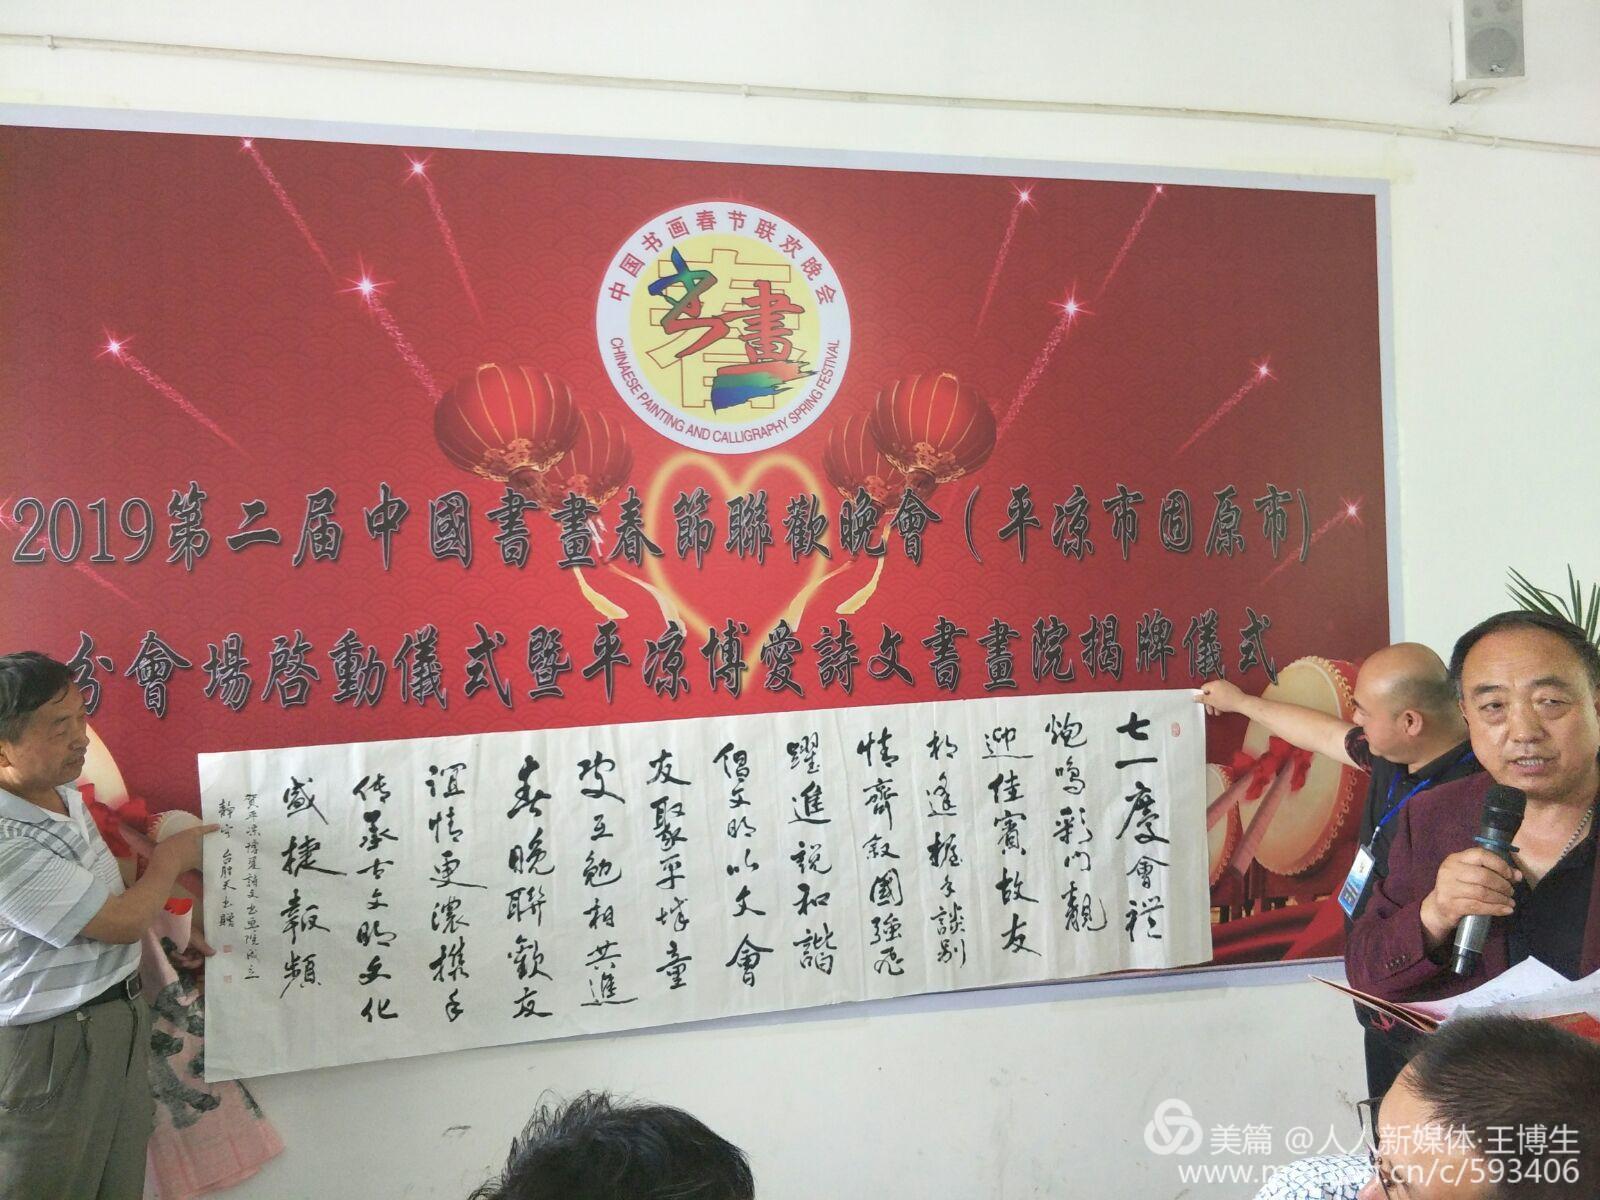 中国书画春节联欢晚会
CHINAESE PAINTING AND CALLIGRAPHY SPRING FESTIVAL
書畫
2019第二届中國書畫春節聯歡晚會（平凉市固原市）
分會場啓動儀式暨平凉博愛詩文書畫院揭牌儀式
七一慶會禮
炮鸣彩门靓
迎佳賓故友
相逢握手談别
情齊叙國强尽
躍進説和諧
倡文明以文會
友聚平城童
叟互勉相共進
春晚聯歡友
誼情更濃携手
传承古文明文化
盛捷報頻
賀平凉博愛詩文書画院成立
静宁
美篇 @人人新媒体·王博生